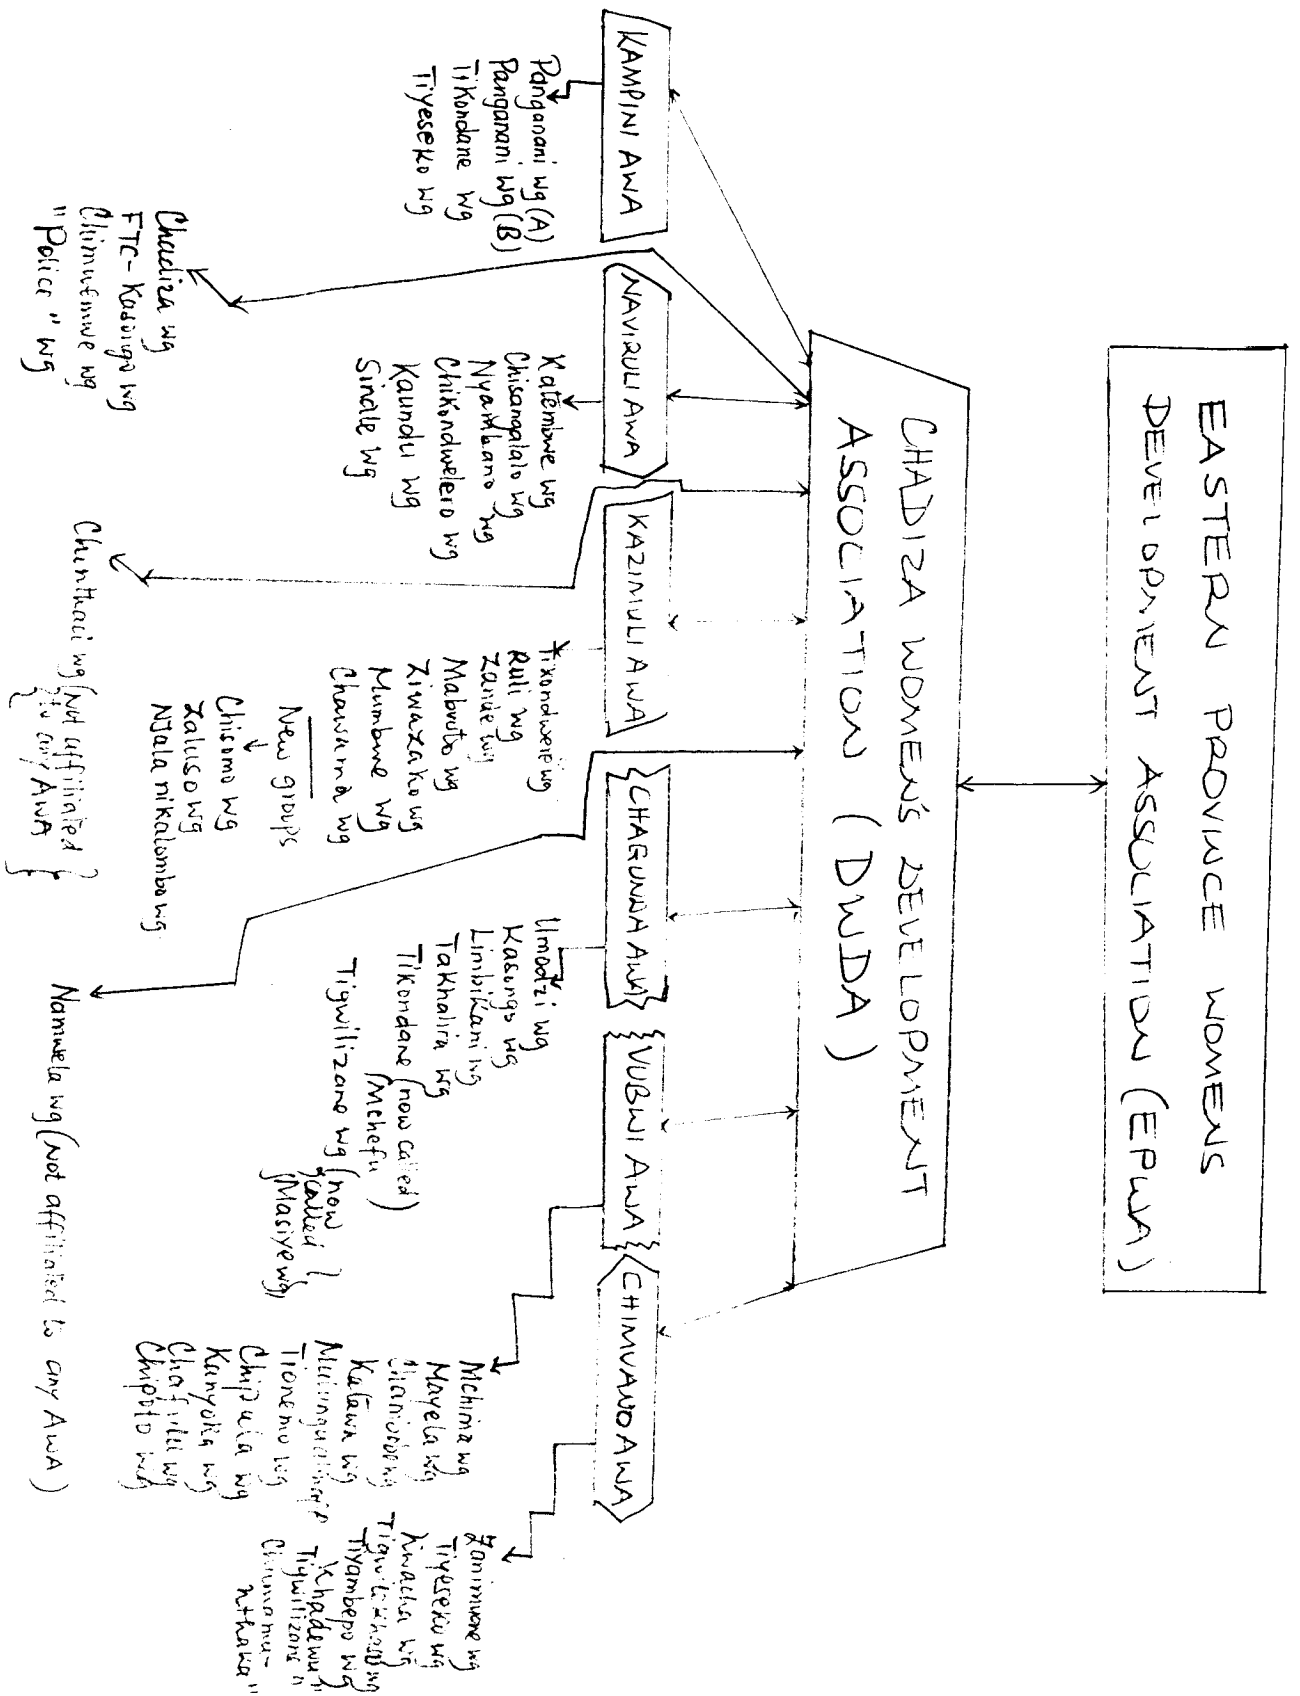 EASTERN PROVINCE WOMENS
DEVELOPMENT ASSOCIATION (EPWA)
CHADIZA WOMEN'S DEVELOPMENT
ASSOCIATION (DWDA)
KAMPINI AWA
NAVIRULI AWA
KAZIMULI AWA
CHAGUNDA AWA
VUBWI AWA
CHIMVANO AWA
Panganani wg (A)
Panganani wg (B)
Tikondane wg
Tiyeseko wg
Chadiza wg
FTC-Kasongo wg
Chimwemwe wg
"Police" wg
Katembwe wg
Chisangalalo wg
Nyambano wg
Chikondwelero wg
Kaundu wg
Sindle wg
Chinthaci wg (Not affiliated
to any AWA)
Tikondwele wg
Ruli wg
Zande wg
Mabvuto wg
Ziwazako wg
Mumbwe wg
Chawama wg
New groups
Chisomo wg
Zaluso wg
Njala nikalombo wg
Umodzi wg
Kasongo wg
Limbikani wg
Takhalira wg
Tikondane (now called
Mchefu)
Tigwilizane wg (now
called
Masiye wg)
Namwela wg (Not affiliated to any AWA)
Mchima wg
Mayela wg
Katawa wg
Tionemo wg
Chipula wg
Kanyoka wg
Chafulu wg
Chipoto wg
Zanimuone wg
Tiyeseko wg
Kwacha wg
Tiyambepo wg
Khadewu "
Tigwilizane "
Chumamu-
nthaka "